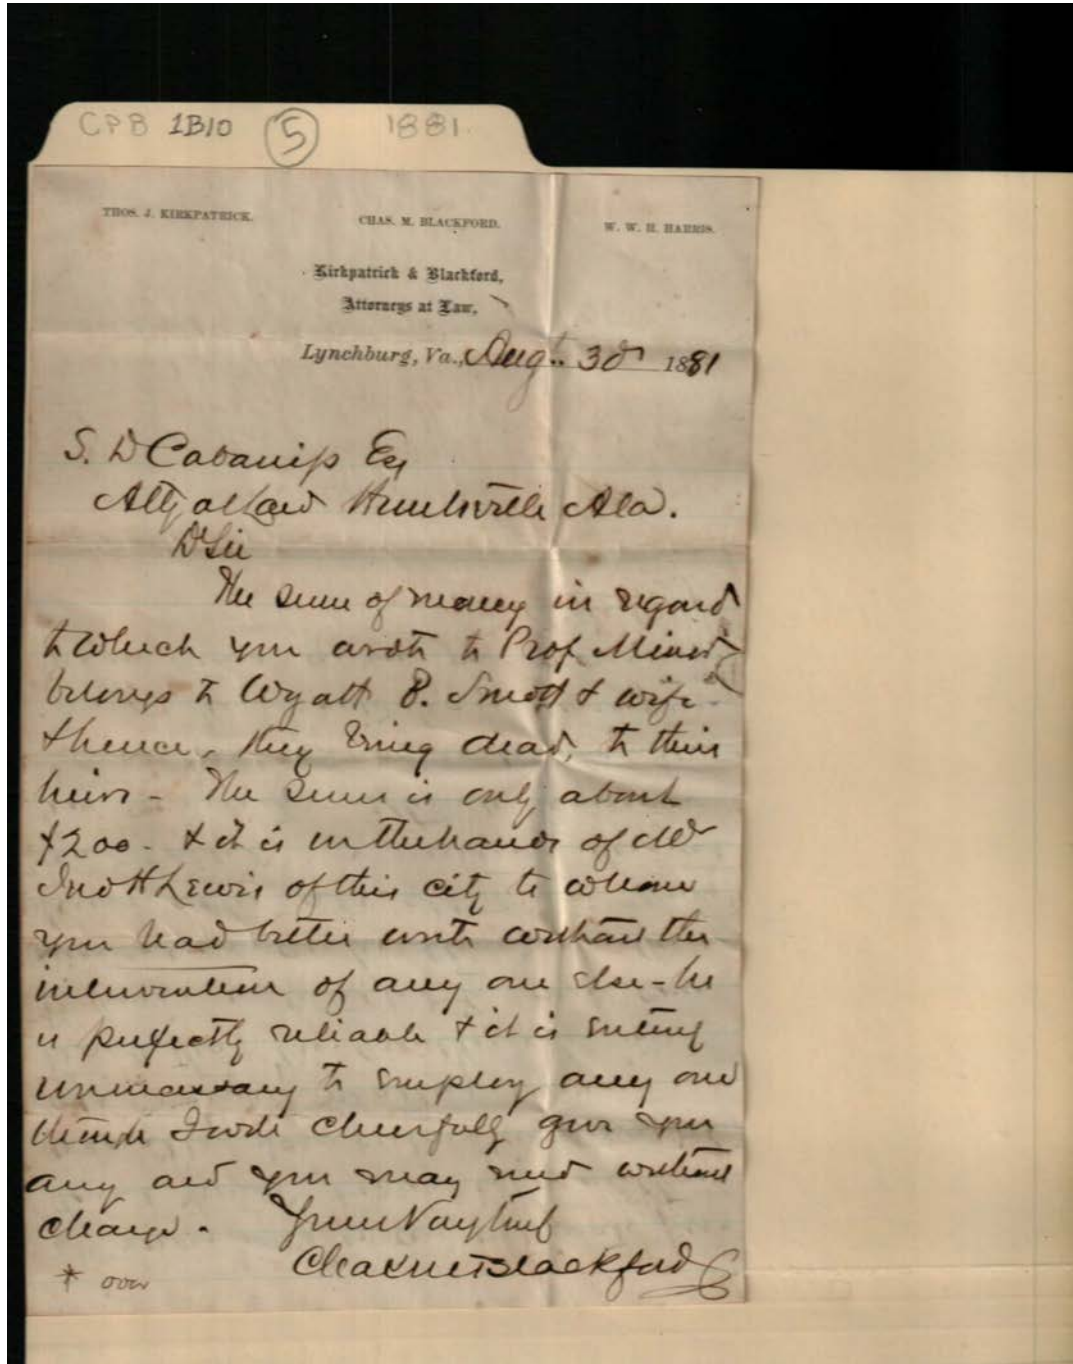 CPB 1B10 5 1881
THOS. J. KIRKPATRICK. CHAS. M. BLACKFORD. W. W. H. HARRIS.
Kirkpatrick & Blackford,
Attorneys at Law,
Lynchburg, Va., Augt. 30 1881
S. D Cabaniss Esq
Atty at Law Huntsville Ala.
D Sir
The sum of money in regard
to which you wrote to Prof Minor
belongs to Wyatt & wife
& hence, they being dead, to their
heirs - The sum is only about
$200. & it is in the hands of Mr
Jno H Lewis of this city to whom
you had better write without the
intervention of any one else - he
is perfectly reliable & it is entirely
unnecessary to employ any one
though I will cheerfully give you
any aid you may need without
charge. Yours Very truly
Chas M Blackford
* over